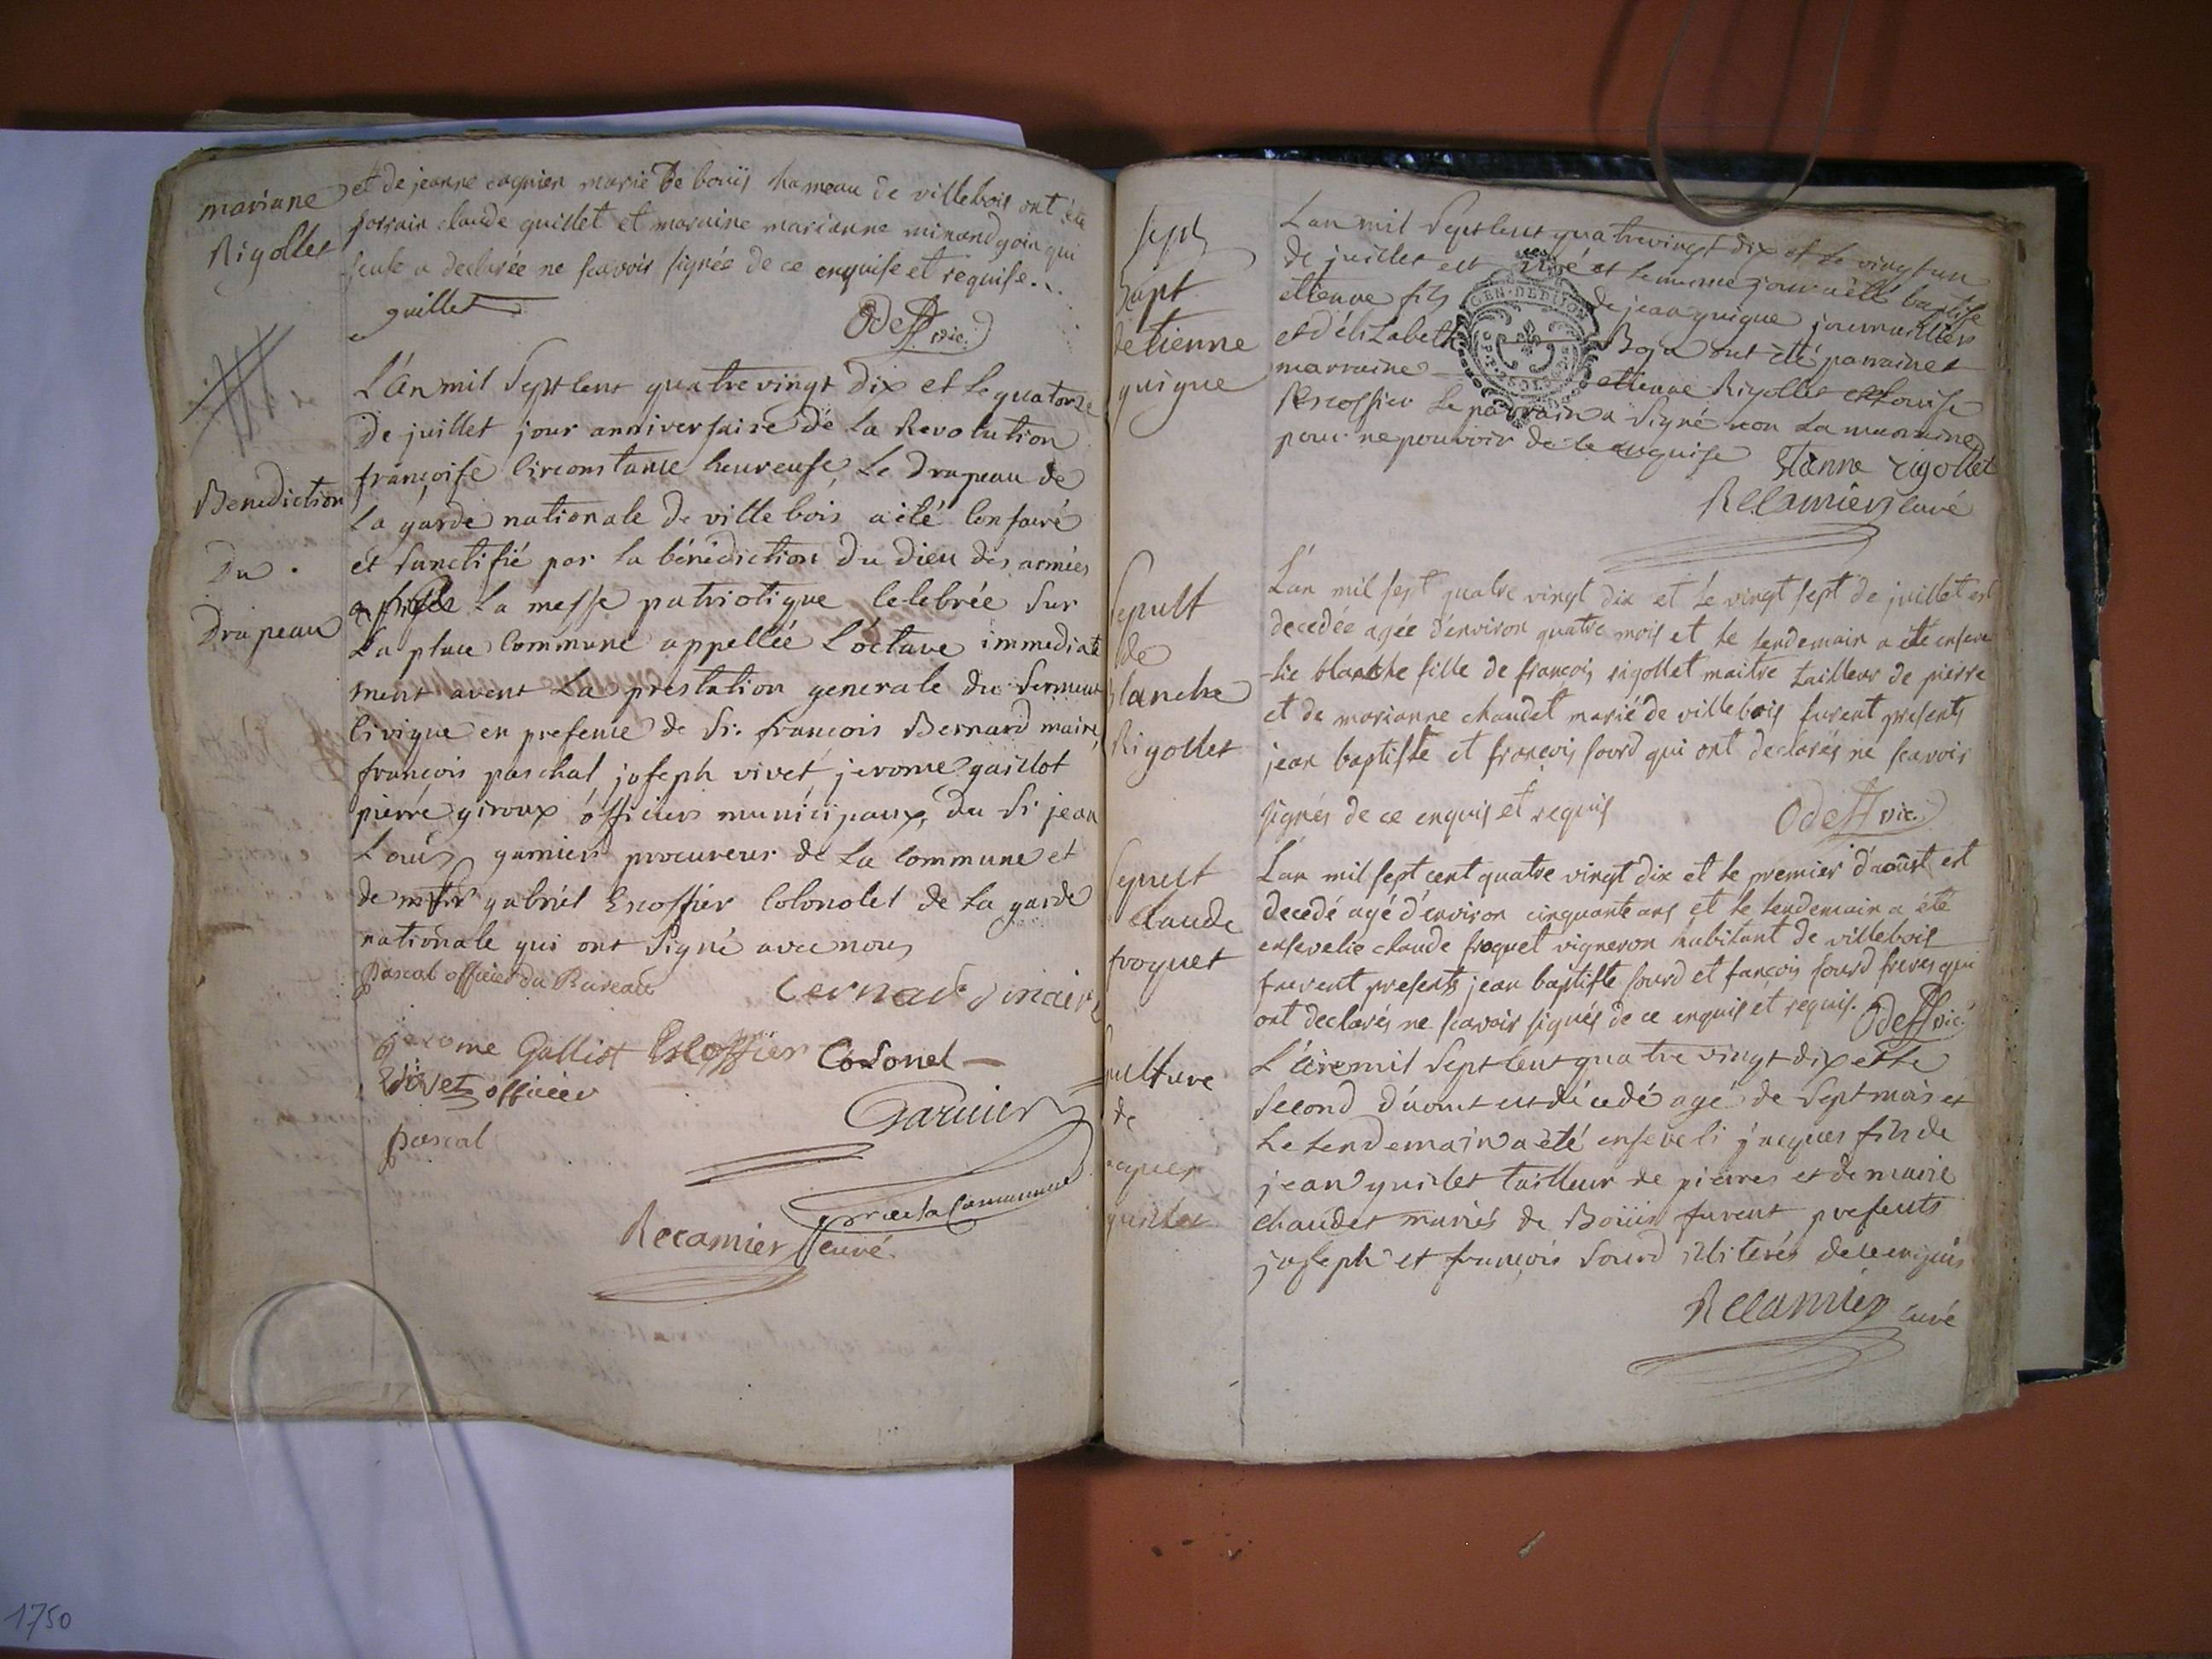 mariane
Rigollet
et de jeanne cagnien marié de bouis hameau de villebois ont été
parrain claude quillet et maraine marianne minandgoin qui
seule a declarée ne scavoir signée de ce enquise et requise...
guillet
Odet vic.
Benediction
Du
Drapeau
L'an mil Sept cent quatre vingt Dix et le quatorze
De juillet jour anniversaire de La Revolution
françoise Circonstance heureuse, Le Drapeau de
La garde nationale de villebois a été Consacré
et Sanctifié par la bénédiction Du Dieu des armées
après La messe patriotique Celebrée Sur
La place Commune appellée L'octave immediate
ment avant La prestation generale du Serment
Civique en presence de Sr. francois Bernard maire,
françois paschal joseph vivet jerome gaillot
pierre giroux officiers municipaux, du Sr jean
Louis garnier procureur de La Commune et
de gabriel Escoffier Colonolel de La garde
nationale qui ont Signé avec nous
Pascal officier du Bureau
Bernard maire
jerome Galliot Escoffier Colonel
Vivet officier
Garnier
pascal
pr de la Commune
Recamier curé.
Bapt
détienne
guigue
L'an mil Sept Cent quatrevingt dix et Le vingt un
de juillet est né et Le meme jour a été baptisé
etienne fils de jean guigue journaillier
et d'éliZabeth Boja ont été parrain et
marraine etienne Rigollet et Louise
Escoffier Le parrain a Signé non La marraine
pour ne pouvoir de Ce enquise
Etienne rigollet
Recamier Curé
GEN. DE DIJON
Sepult
de
blanche
Rigollet
L'an mil sept quatre vingt dix et le vingt sept de juillet est
decedée agée d'environ quatre mois et le lendemain a été enseve
-lie blanche fille de françois rigollet maitre tailleur de pierre
et de marianne chaudet marié de villebois furent presents
jean baptiste et françois sourd qui ont declarés ne scavoir
signés de ce enquis et requis
Odet vic.
Sepult
Claude
froquet
L'an mil sept cent quatre vingt dix et le premier d'août est
decedé agé d'environ cinquante ans et le lendemain a été
ensevelie claude froquet vigneron habitant de villebois
furent presents jean baptiste sourd et françois sourd freres qui
ont declarés ne scavoir signés de ce enquis et requis. Odet vic.
pulture
de
acques
quillet
L'an mil Sept Cent quatre vingt dix et Le
Second d'aout est décedé agé de Sept mois et
Le Lendemain a été enseveli jacques fils de
jean quillet tailleur de pierres et de marie
chaudet mariés de Boüis furent presents
joseph et françois Sourd illiterés de Ce enquis
Recamier Curé
1750